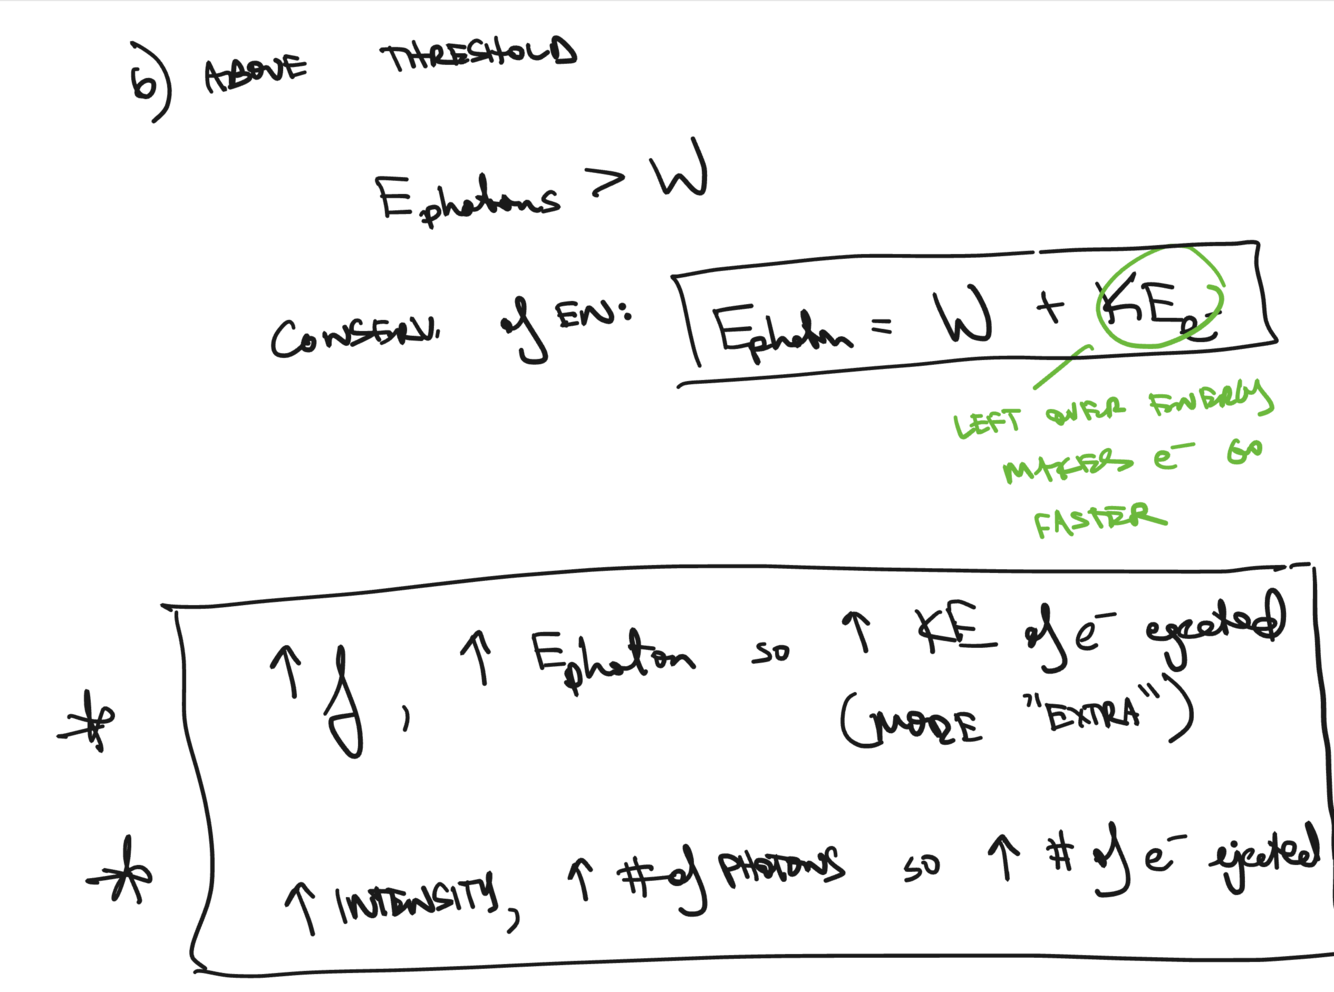 b) ABOVE THRESHOLD
Ephotons > W
CONSERV. of EN: Ephoton = W + KEe-
LEFT OVER ENERGY
MAKES e- GO
FASTER
↑ f, ↑ Ephoton so ↑ KE of e- ejected
(MORE "EXTRA")
* 
↑ INTENSITY, ↑ # of PHOTONS so ↑ # of e- ejected
*